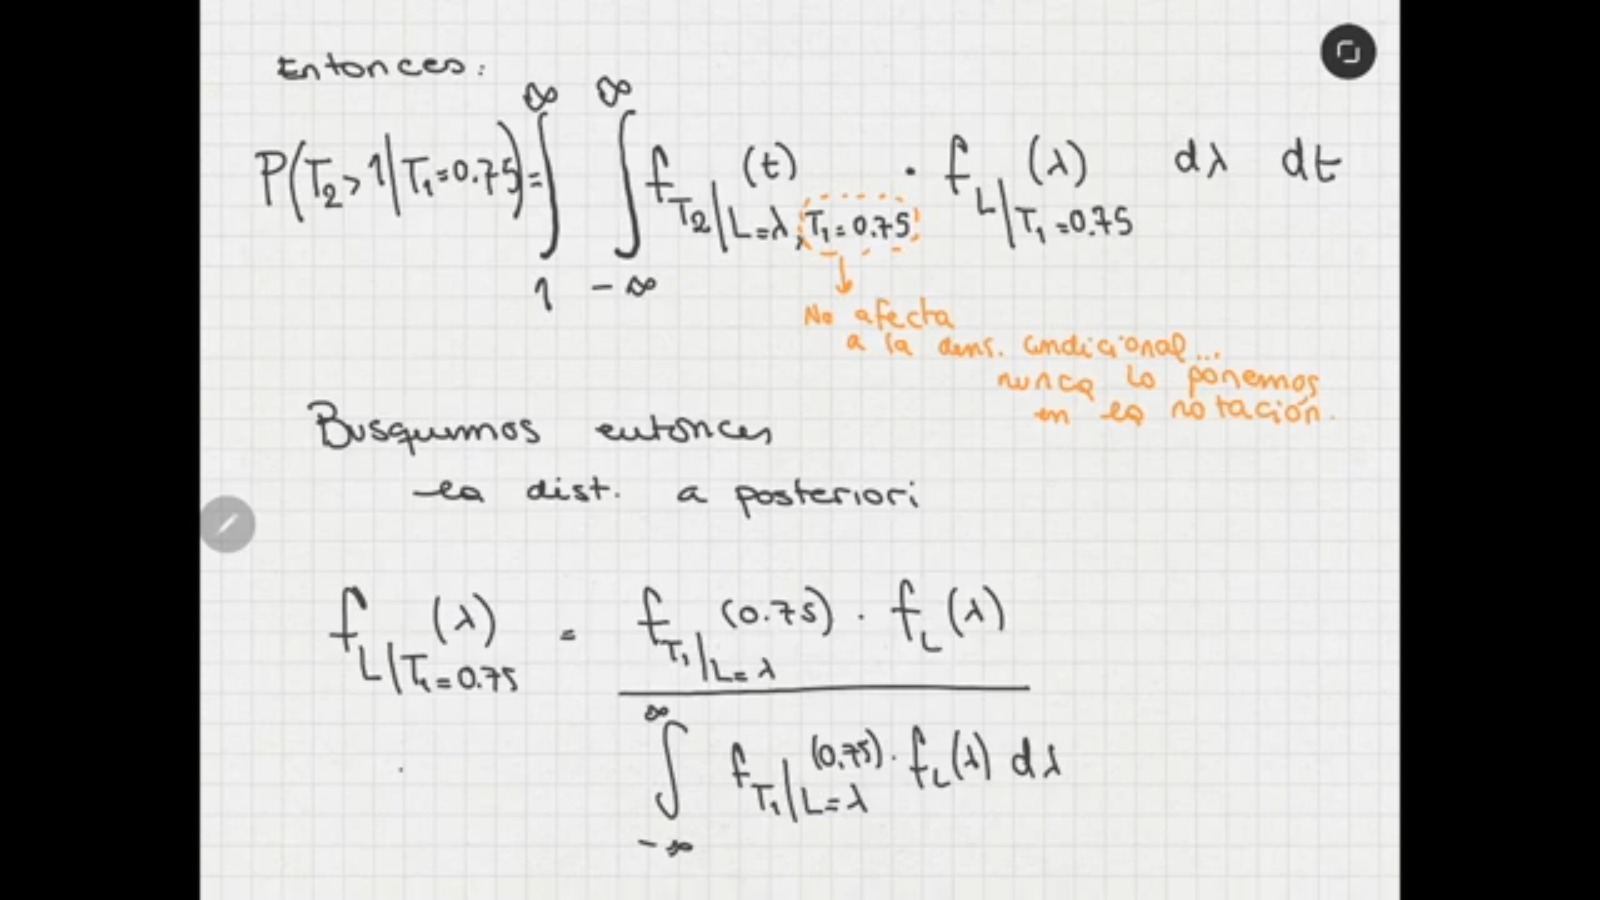 Entonces:
P(T₂>1|T₁=0.75)=∫₁^∞ ∫₋∞^∞ f_{T₂|L=λ, T₁=0.75}(t) · f_{L|T₁=0.75}(λ) dλ dt
No afecta
a la dens. condicional...
nunca lo ponemos
en la notación.
Busquemos entonces
la dist. a posteriori
f_{L|T₁=0.75}(λ) = f_{T₁|L=λ}(0.75) · f_L(λ)
∫₋∞^∞ f_{T₁|L=λ}(0.75) · f_L(λ) dλ